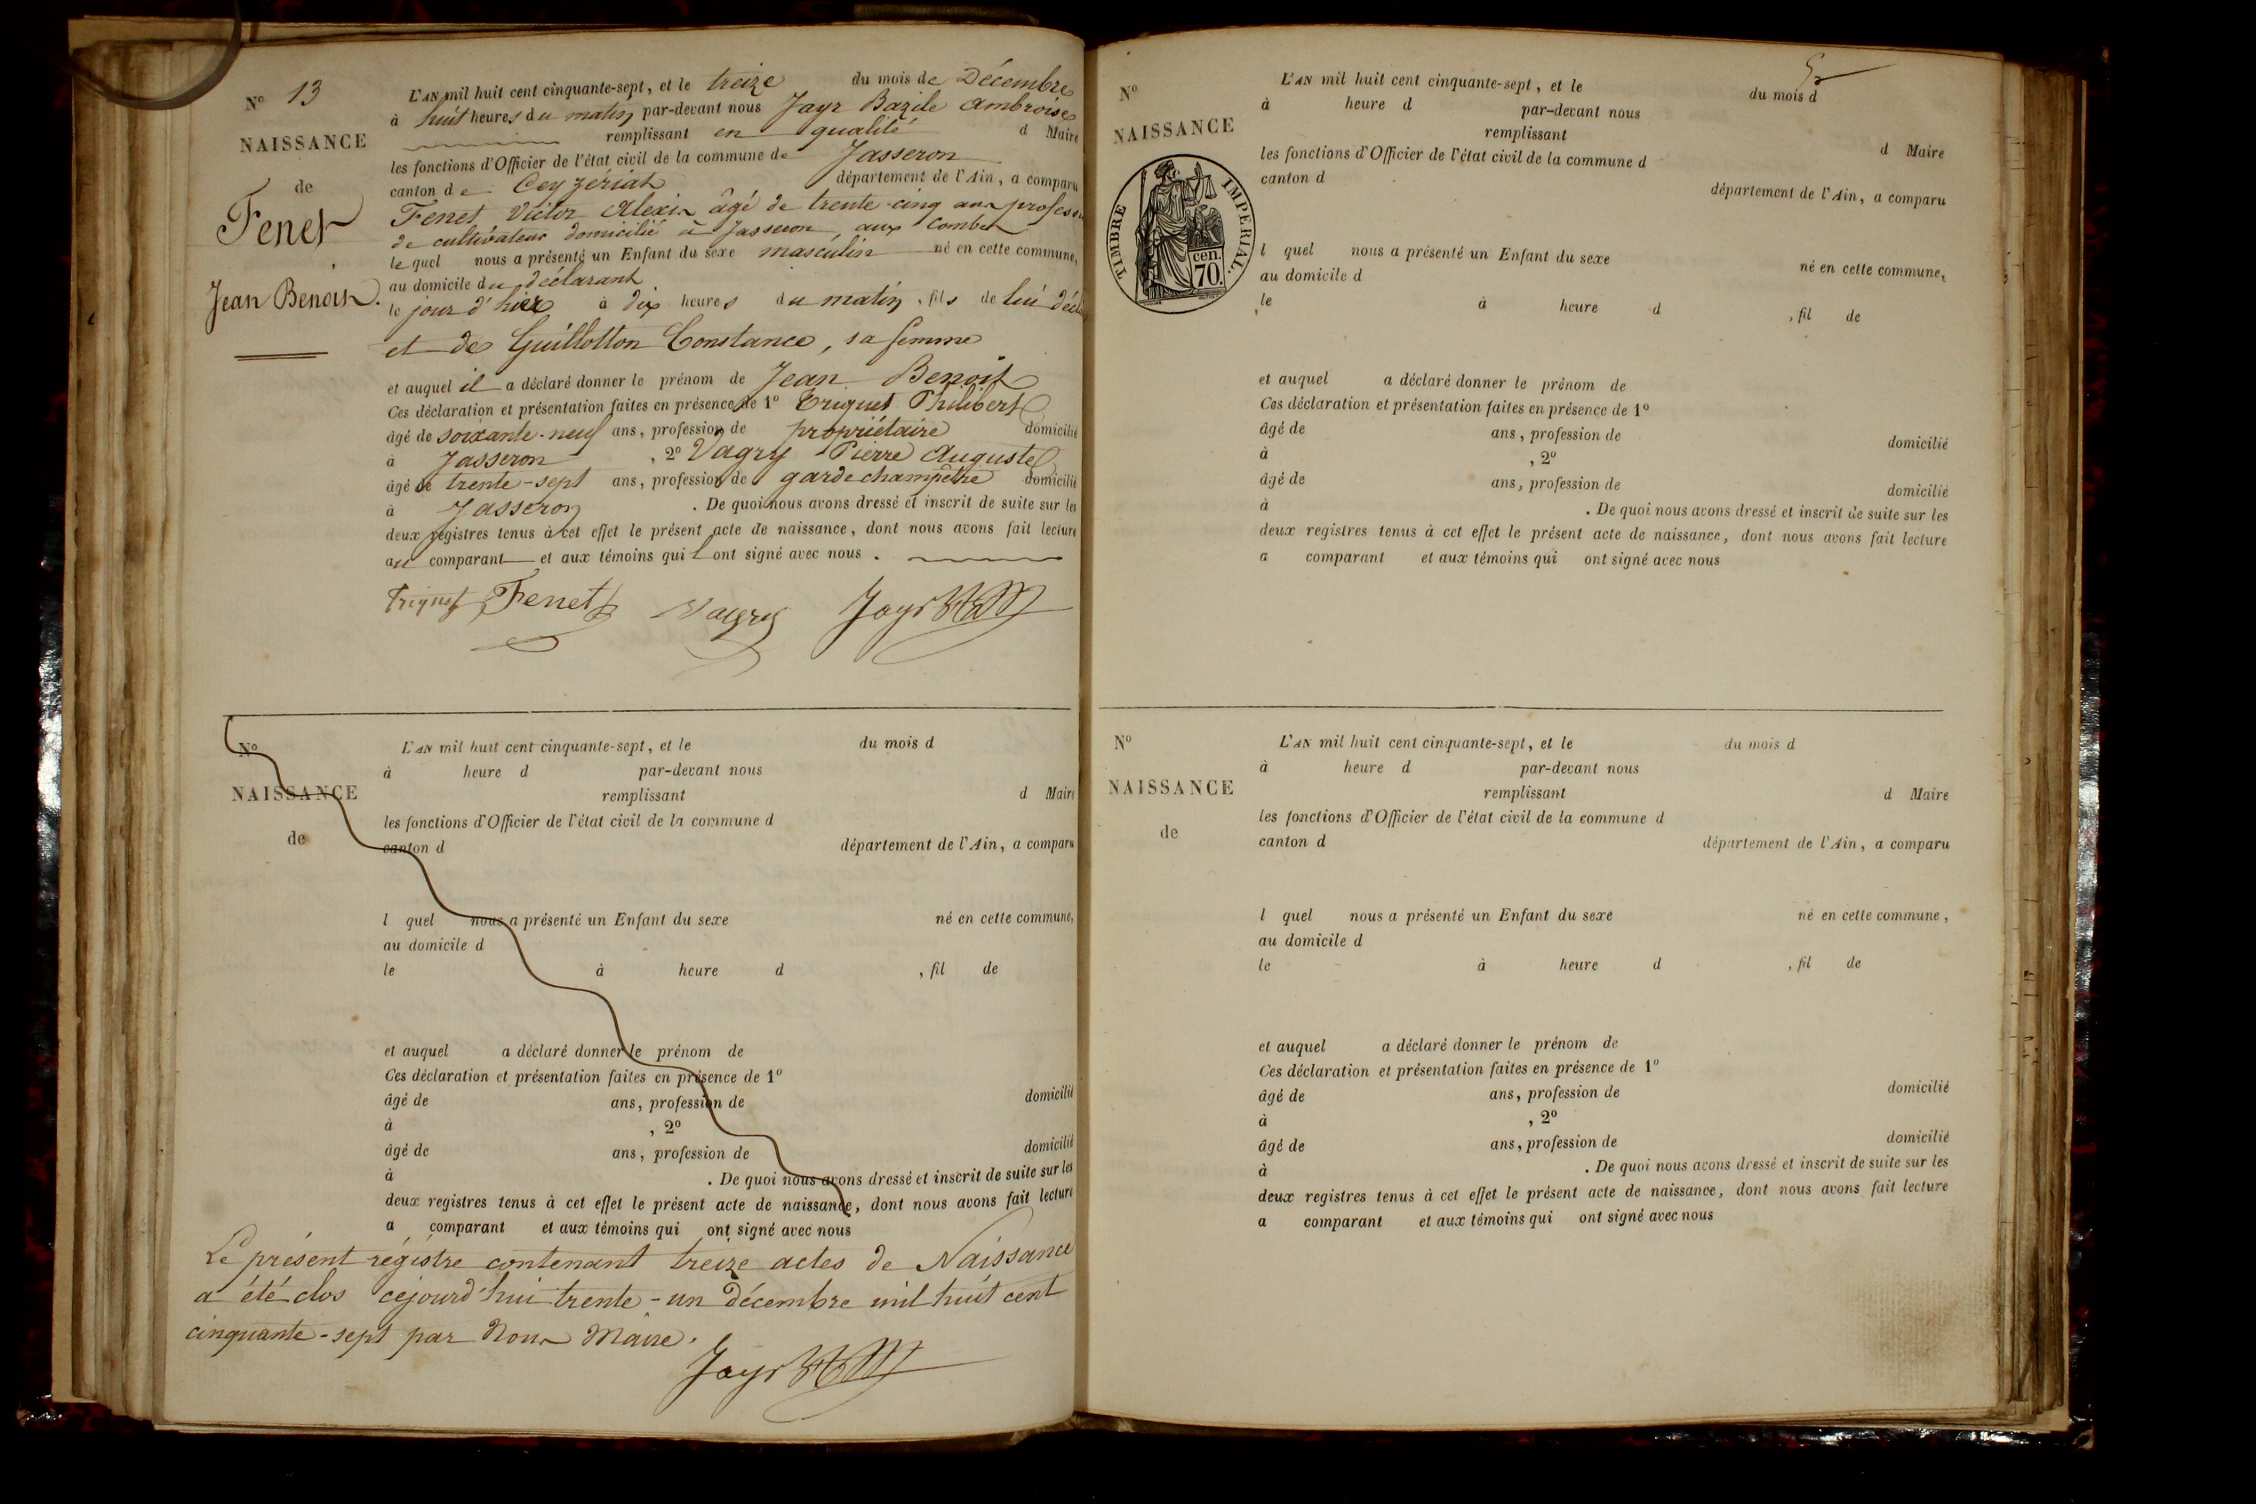 N° 13
NAISSANCE
de
Fenet
Jean Benoit.
L'AN mil huit cent cinquante-sept, et le treize du mois de Décembre
à huit heures du matin par-devant nous Jayr Bazile Ambroise
remplissant en qualité d Maire
les fonctions d'Officier de l'état civil de la commune de Jasseron
canton de Ceyzériat département de l'Ain, a comparu
Fenet Victor Alexis âgé de trente-cinq ans profession
de cultivateur domicilié à Jasseron, aux Combes
lequel nous a présenté un Enfant du sexe masculin né en cette commune,
au domicile du déclarant
le jour d'hier à dix heures du matin, fils de lui décla
et de Guillotton Constance, sa femme
et auquel il a déclaré donner le prénom de Jean Benoit
Ces déclaration et présentation faites en présence de 1° Triquet Philibert
âgé de soixante-neuf ans, profession de propriétaire domicilié
à Jasseron, 2° Vagry Pierre Auguste
âgé de trente-sept ans, profession de garde champêtre domicilié
à Jasseron. De quoi nous avons dressé et inscrit de suite sur les
deux registres tenus à cet effet le présent acte de naissance, dont nous avons fait lecture
au comparant et aux témoins qui ont signé avec nous.
Triquet Fenet Vagry Jayr
N°
NAISSANCE
de
L'AN mil huit cent cinquante-sept, et le du mois d
à heure d par-devant nous
remplissant d Maire
les fonctions d'Officier de l'état civil de la commune d
canton d département de l'Ain, a comparu
l quel nous a présenté un Enfant du sexe né en cette commune,
au domicile d
le à heure d , fil de
et auquel a déclaré donner le prénom de
Ces déclaration et présentation faites en présence de 1°
âgé de ans, profession de domicilié
à , 2°
âgé de ans, profession de domicilié
à . De quoi nous avons dressé et inscrit de suite sur les
deux registres tenus à cet effet le présent acte de naissance, dont nous avons fait lecture
a comparant et aux témoins qui ont signé avec nous
Le présent régistre contenant treize actes de Naissance
a été clos cejourd'hui trente-un décembre mil huit cent
cinquante-sept par Nous Maire.
Jayr
N°
NAISSANCE
TIMBRE IMPERIAL.
cen.
70.
L'AN mil huit cent cinquante-sept, et le du mois d
à heure d par-devant nous
remplissant d Maire
les fonctions d'Officier de l'état civil de la commune d
canton d département de l'Ain, a comparu
l quel nous a présenté un Enfant du sexe né en cette commune,
au domicile d
le à heure d , fil de
et auquel a déclaré donner le prénom de
Ces déclaration et présentation faites en présence de 1°
âgé de ans, profession de domicilié
à , 2°
âgé de ans, profession de domicilié
à . De quoi nous avons dressé et inscrit de suite sur les
deux registres tenus à cet effet le présent acte de naissance, dont nous avons fait lecture
a comparant et aux témoins qui ont signé avec nous
N°
NAISSANCE
de
L'AN mil huit cent cinquante-sept, et le du mois d
à heure d par-devant nous
remplissant d Maire
les fonctions d'Officier de l'état civil de la commune d
canton d département de l'Ain, a comparu
l quel nous a présenté un Enfant du sexe né en cette commune,
au domicile d
le à heure d , fil de
et auquel a déclaré donner le prénom de
Ces déclaration et présentation faites en présence de 1°
âgé de ans, profession de domicilié
à , 2°
âgé de ans, profession de domicilié
à . De quoi nous avons dressé et inscrit de suite sur les
deux registres tenus à cet effet le présent acte de naissance, dont nous avons fait lecture
a comparant et aux témoins qui ont signé avec nous